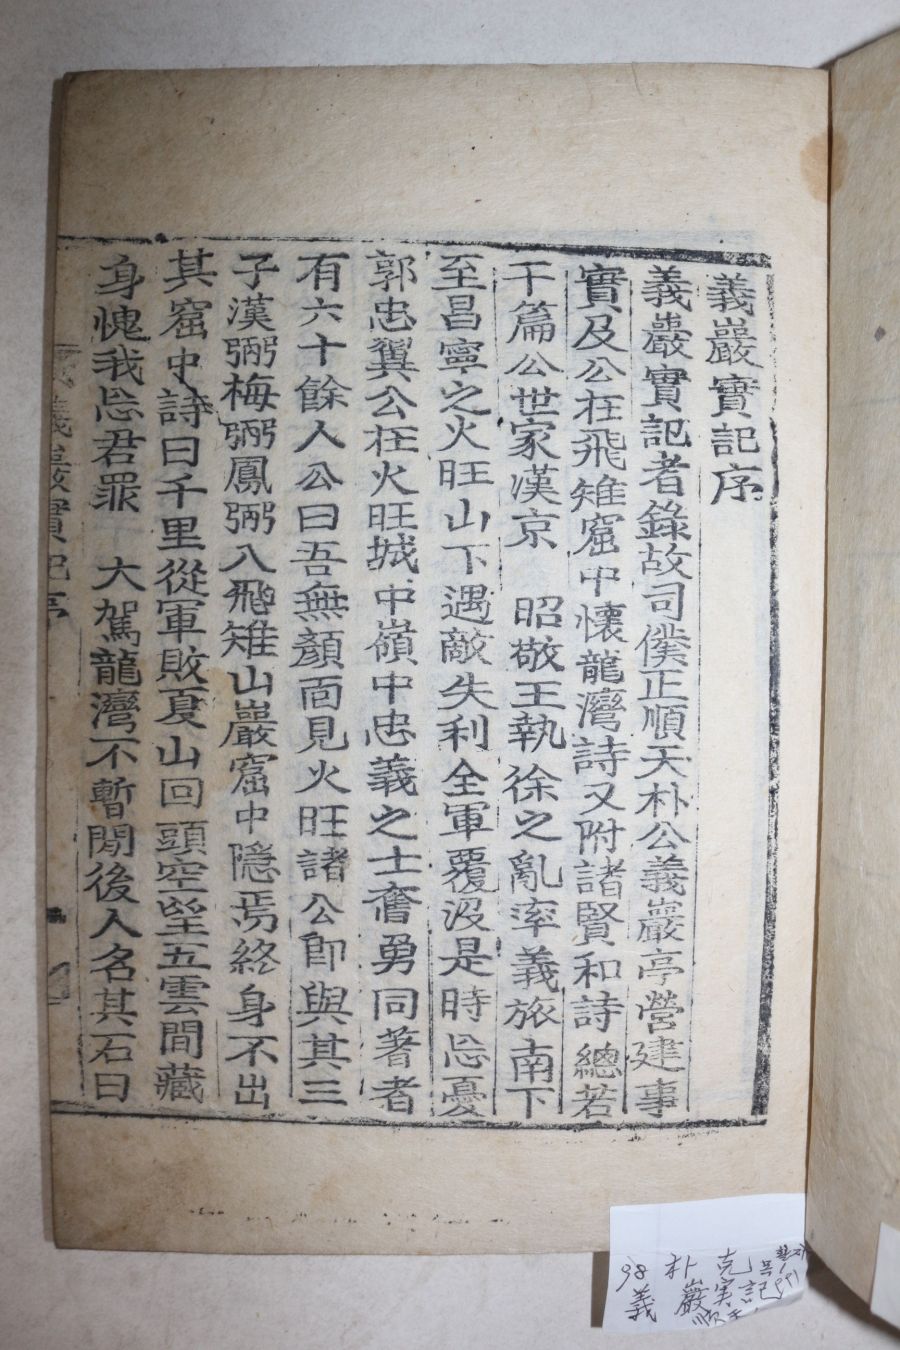 義巖實記序
義巖實記者錄故司僕正順天朴公義巖亭營建事
實及公在飛雉窟中懷龍灣詩又附諸賢和詩總若
干篇公世家漢京 昭敬王執徐之亂率義旅南下
至昌寧之火旺山下遇敵失利全軍覆沒是時忘憂
郭忠翼公在火旺城中嶺中忠義之士奮勇同著者
有六十餘人公曰吾無顏面見火旺諸公卽與其三
子漢弼梅弼鳳弼入飛雉山巖窟中隱焉終身不出
其窟中詩曰千里從軍敗夏山回頭空望五雲間藏
身愧我忘君罪 大駕龍灣不暫閒後人名其石曰
義巖實記序
98 朴 克
義 巖実記